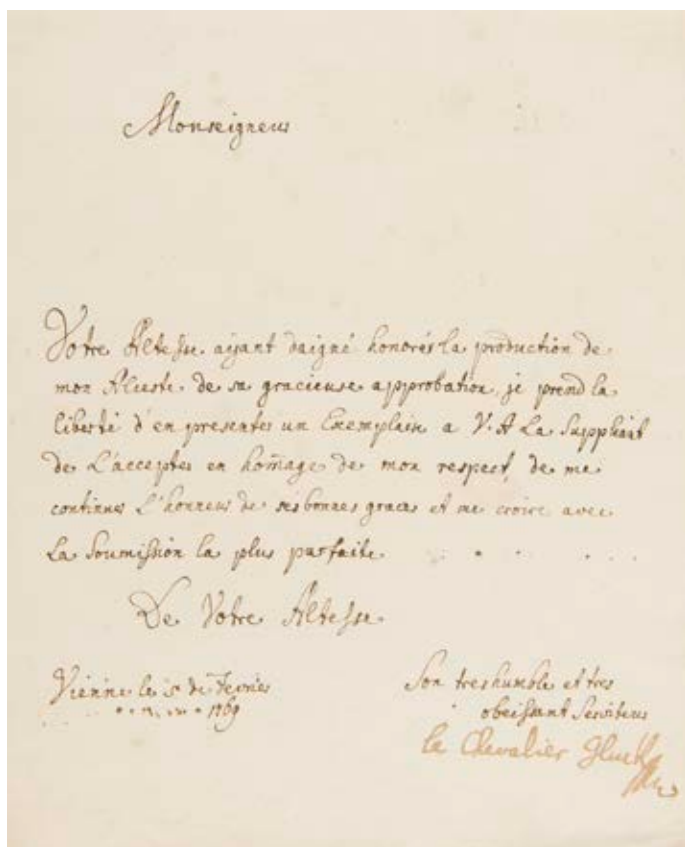 Monseigneur
Votre Altesse ayant daigné honorer la production de
mon Alceste de sa gracieuse approbation, je prend la
liberté d'en presenter un Exemplaire a V. A La Suppliant
de L'accepter en hom̄age de mon respect, de me
continuer L'honneur de ses bonnes graces et me croire avec
La Soumission la plus parfaite
De Votre Altesse
Vienne le 5 de Fevrier
1769
Son tres humble et tres
obeissant Serviteur
le Chevalier Gluck